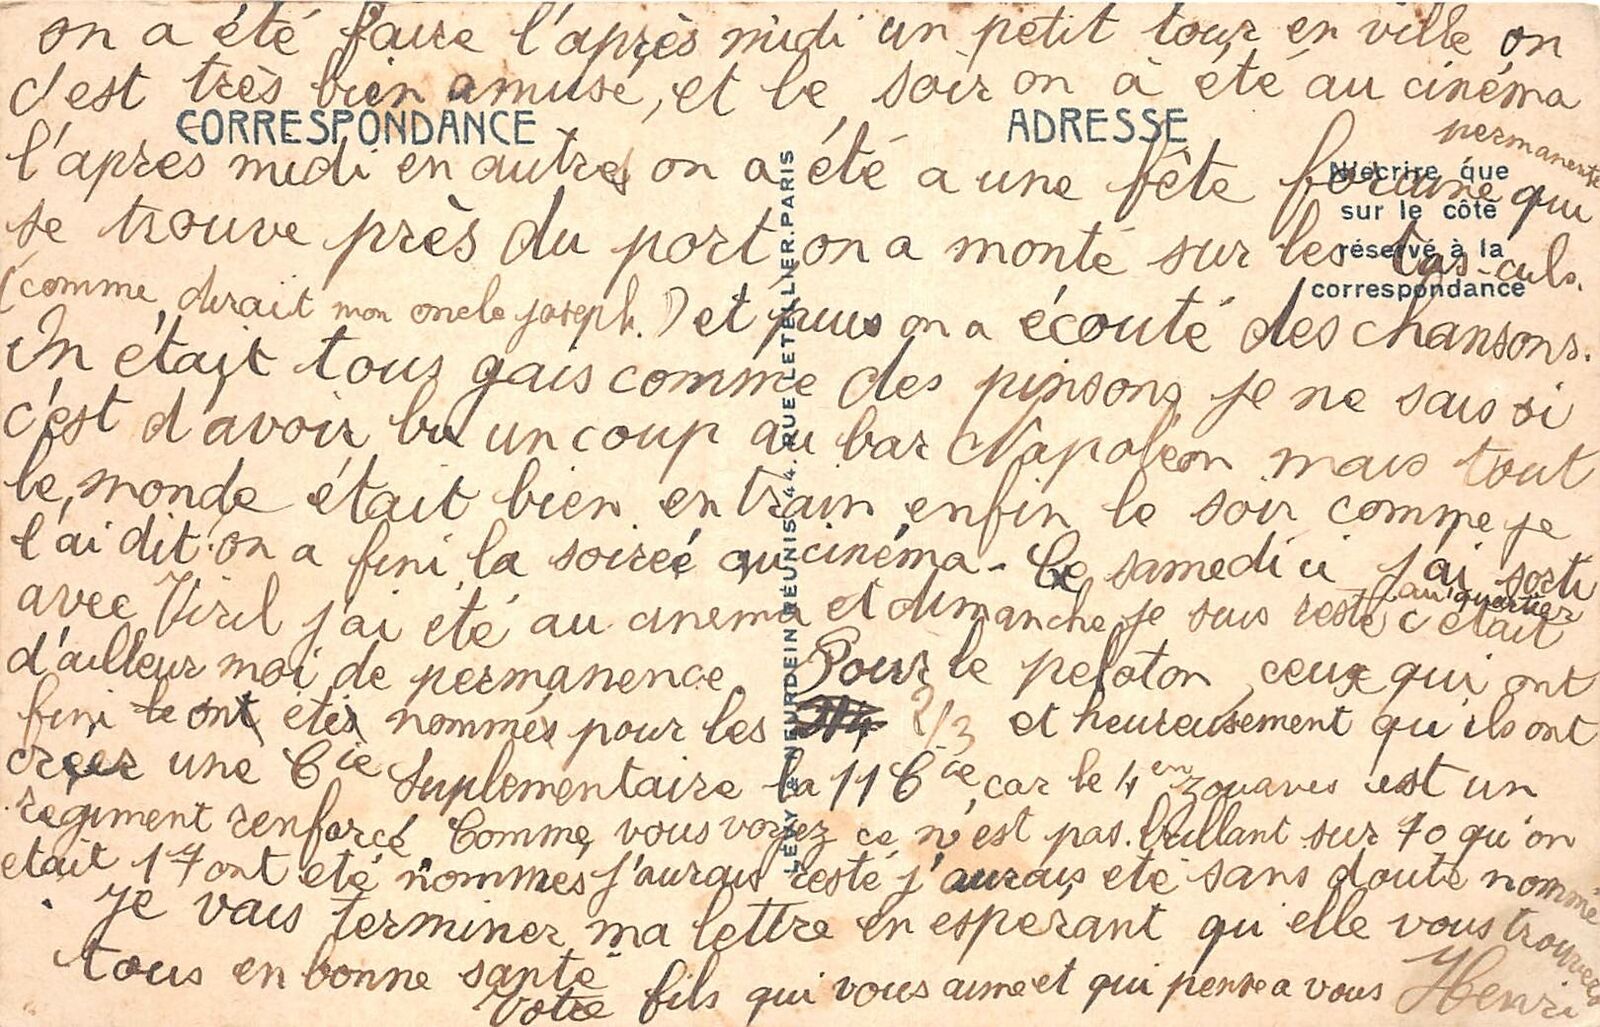 on a été faire l'après midi un petit tour en ville on
c'est très bien amusé, et le soir on à été au cinéma
CORRESPONDANCE
ADRESSE
permanente
l'apres midi en autre on a été a une fête foraine qui
N'ecrire que
sur le côté
réservé à la
correspondance
se trouve près du port, on a monté sur les tas-culs.
(comme dirait mon oncle joseph.) et puis on a écouté des chansons.
On était tous gais comme des pinsons je ne sais si
c'est d'avoir bu un coup au bar Napoléon mais tout
le monde était bien en train enfin le soir comme je
l'ai dit on a fini la soirée au cinéma - Ce samedi ci j'ai sorti
avec Viril j'ai été au cinema et dimanche je suis resté au quartier c'était
d'ailleur moi de permanence. Pour le peloton, ceux qui ont
fini le ont étés nommés pour les 2/3 et heureusement qu'ils ont
créer une Cie suplementaire la 11 Cie, car le 4 em zouaves est un
regiment renforcé Comme vous voyez ce n'est pas brillant sur 70 qu'on
etait 17 ont été nommes j'aurais resté j'aurais eté sans doute nommé
Je vais terminer ma lettre en esperant qu'elle vous trouvera
tous en bonne santé
Votre fils qui vous aime et qui pense a vous Henri
LEVY & NEURDEIN REUNIS. 44. RUE LETELLIER. PARIS